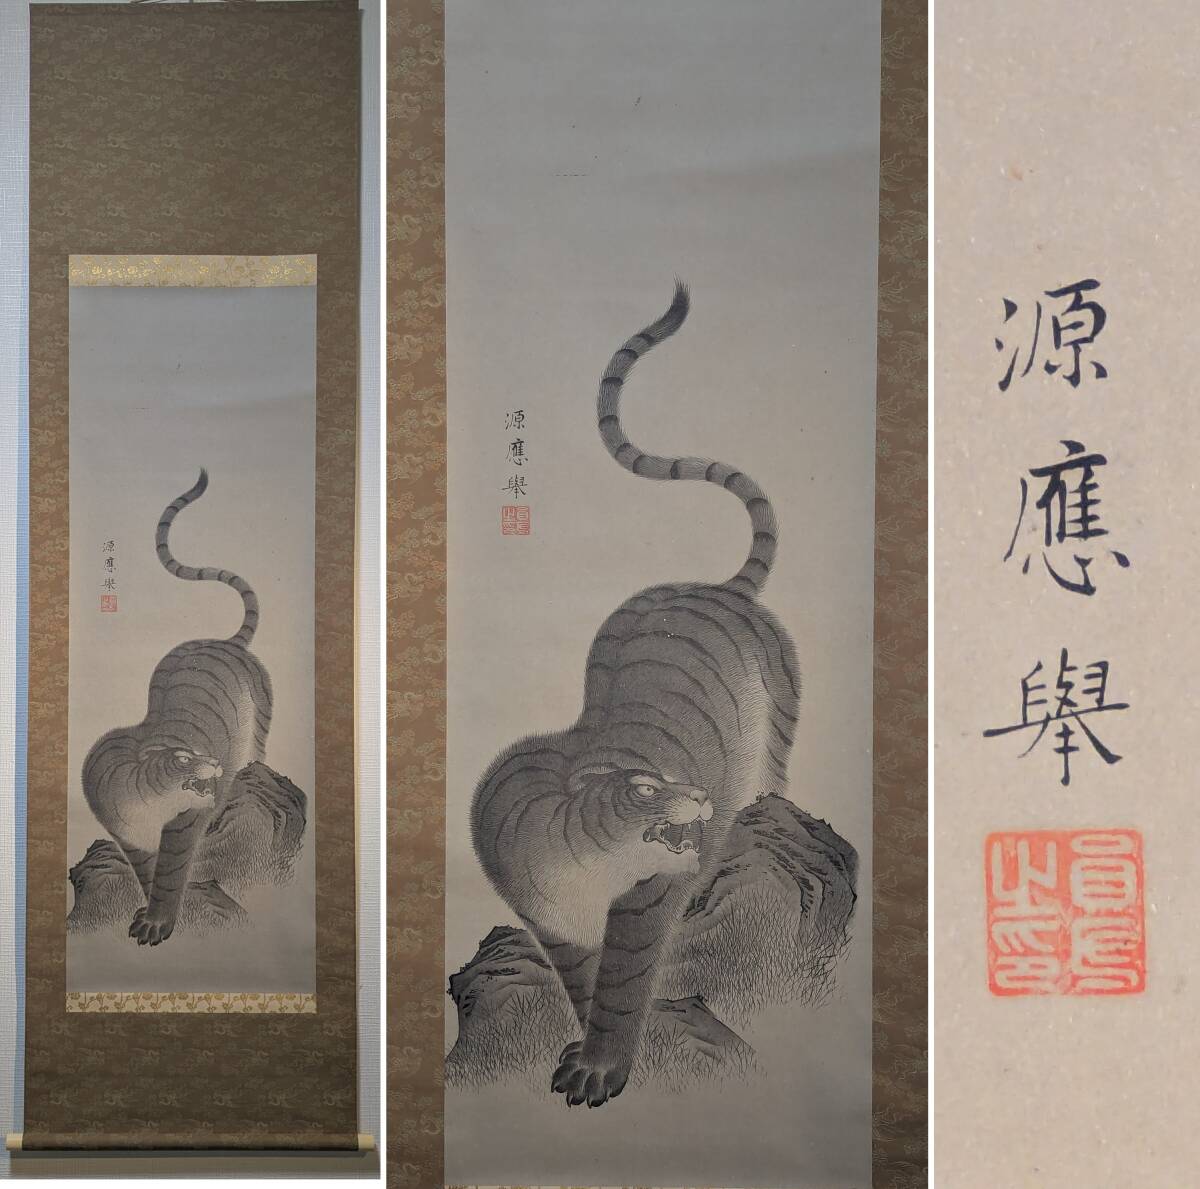 源
應
擧
源
應
擧
源
應
擧